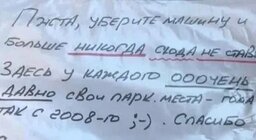 ПЖСТА, УБЕРИТЕ МАШИНУ И
БОЛЬШЕ НИКОГДА СЮДА НЕ СТАВ
ЗДЕСЬ У КАЖДОГО ОООЧЕНЬ
ДАВНО СВОИ ПАРК. МЕСТА - ГОДА
ТАК С 2008-ГО ;-). СПАСИБО